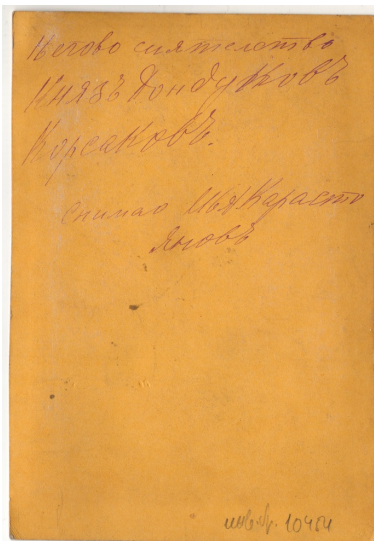 Негово сиятелство
Князъ Дондуковъ
Корсаковъ.
снимао Ив. Карасто
яновъ
инв. № 10454